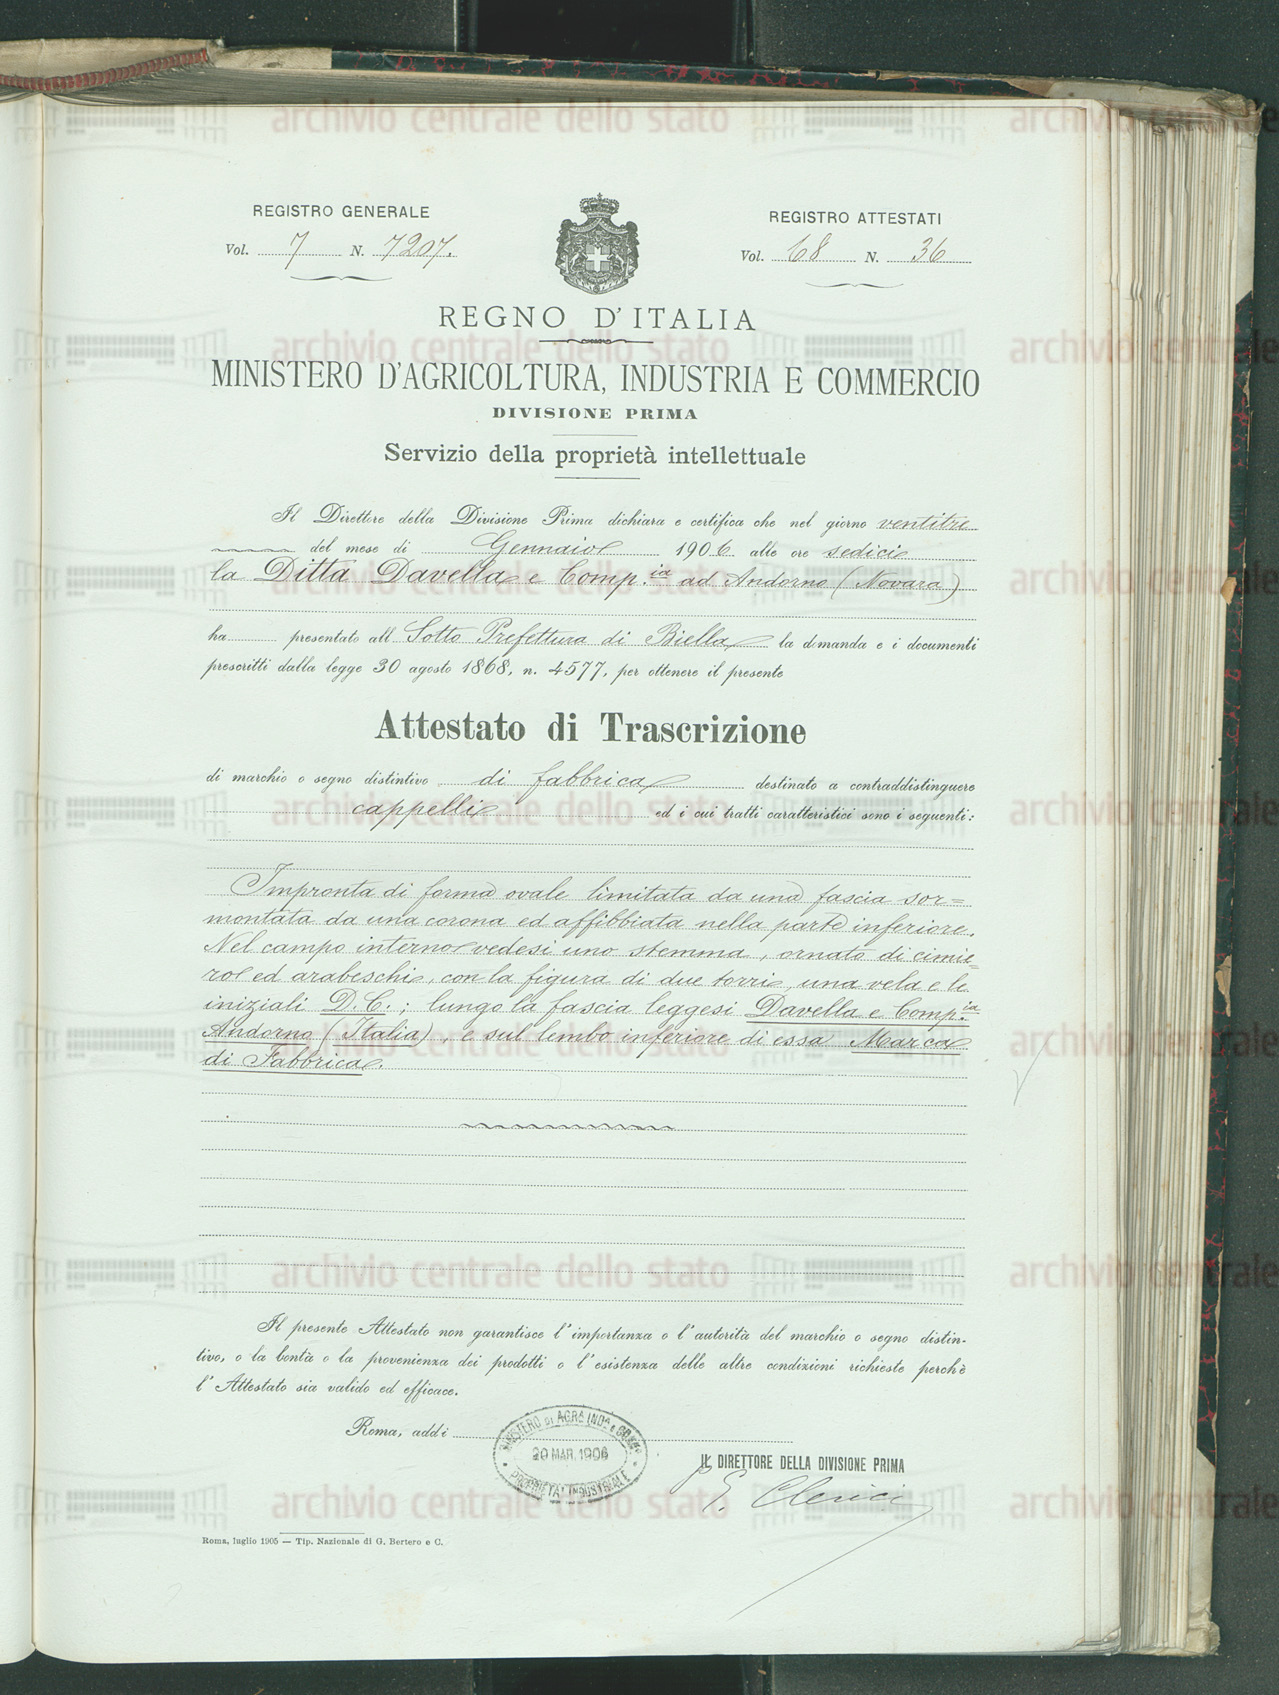 REGISTRO GENERALE
Vol. 7 N. 7207.
REGISTRO ATTESTATI
Vol. 68 N. 36
REGNO D'ITALIA
MINISTERO D'AGRICOLTURA, INDUSTRIA E COMMERCIO
DIVISIONE PRIMA
Servizio della proprietà intellettuale
Il Direttore della Divisione Prima dichiara e certifica che nel giorno ventitre
del mese di Gennaio 1906 alle ore sedici
la Ditta Davella e Comp.ia ad Andorno (Novara)
ha presentato all Sotto Prefettura di Biella la domanda e i documenti
prescritti dalla legge 30 agosto 1868, n. 4577, per ottenere il presente
Attestato di Trascrizione
di marchio o segno distintivo di fabbrica destinato a contraddistinguere
cappelli ed i cui tratti caratteristici sono i seguenti:
Impronta di forma ovale limitata da una fascia sor=
montata da una corona ed affibbiata nella parte inferiore.
Nel campo interno vedesi uno stemma, ornato di cimie=
ro ed arabeschi, con la figura di due torri, una vela e le
iniziali D.C.; lungo la fascia leggesi Davella e Comp.ia
Andorno (Italia), e sul lembo inferiore di essa Marca
di Fabbrica.
Il presente Attestato non garantisce l'importanza o l'autorità del marchio o segno distin-
tivo, o la bontà o la provenienza dei prodotti o l'esistenza delle altre condizioni richieste perchè
l'Attestato sia valido ed efficace.
Roma, addi
MINISTERO DI AGRA INDA E COMMo
20 MAR. 1906
PROPRIETA' INDUSTRIALE
IL DIRETTORE DELLA DIVISIONE PRIMA
G. Clerici
Roma, luglio 1905 — Tip. Nazionale di G. Bertero e C.
archivio centrale dello stato